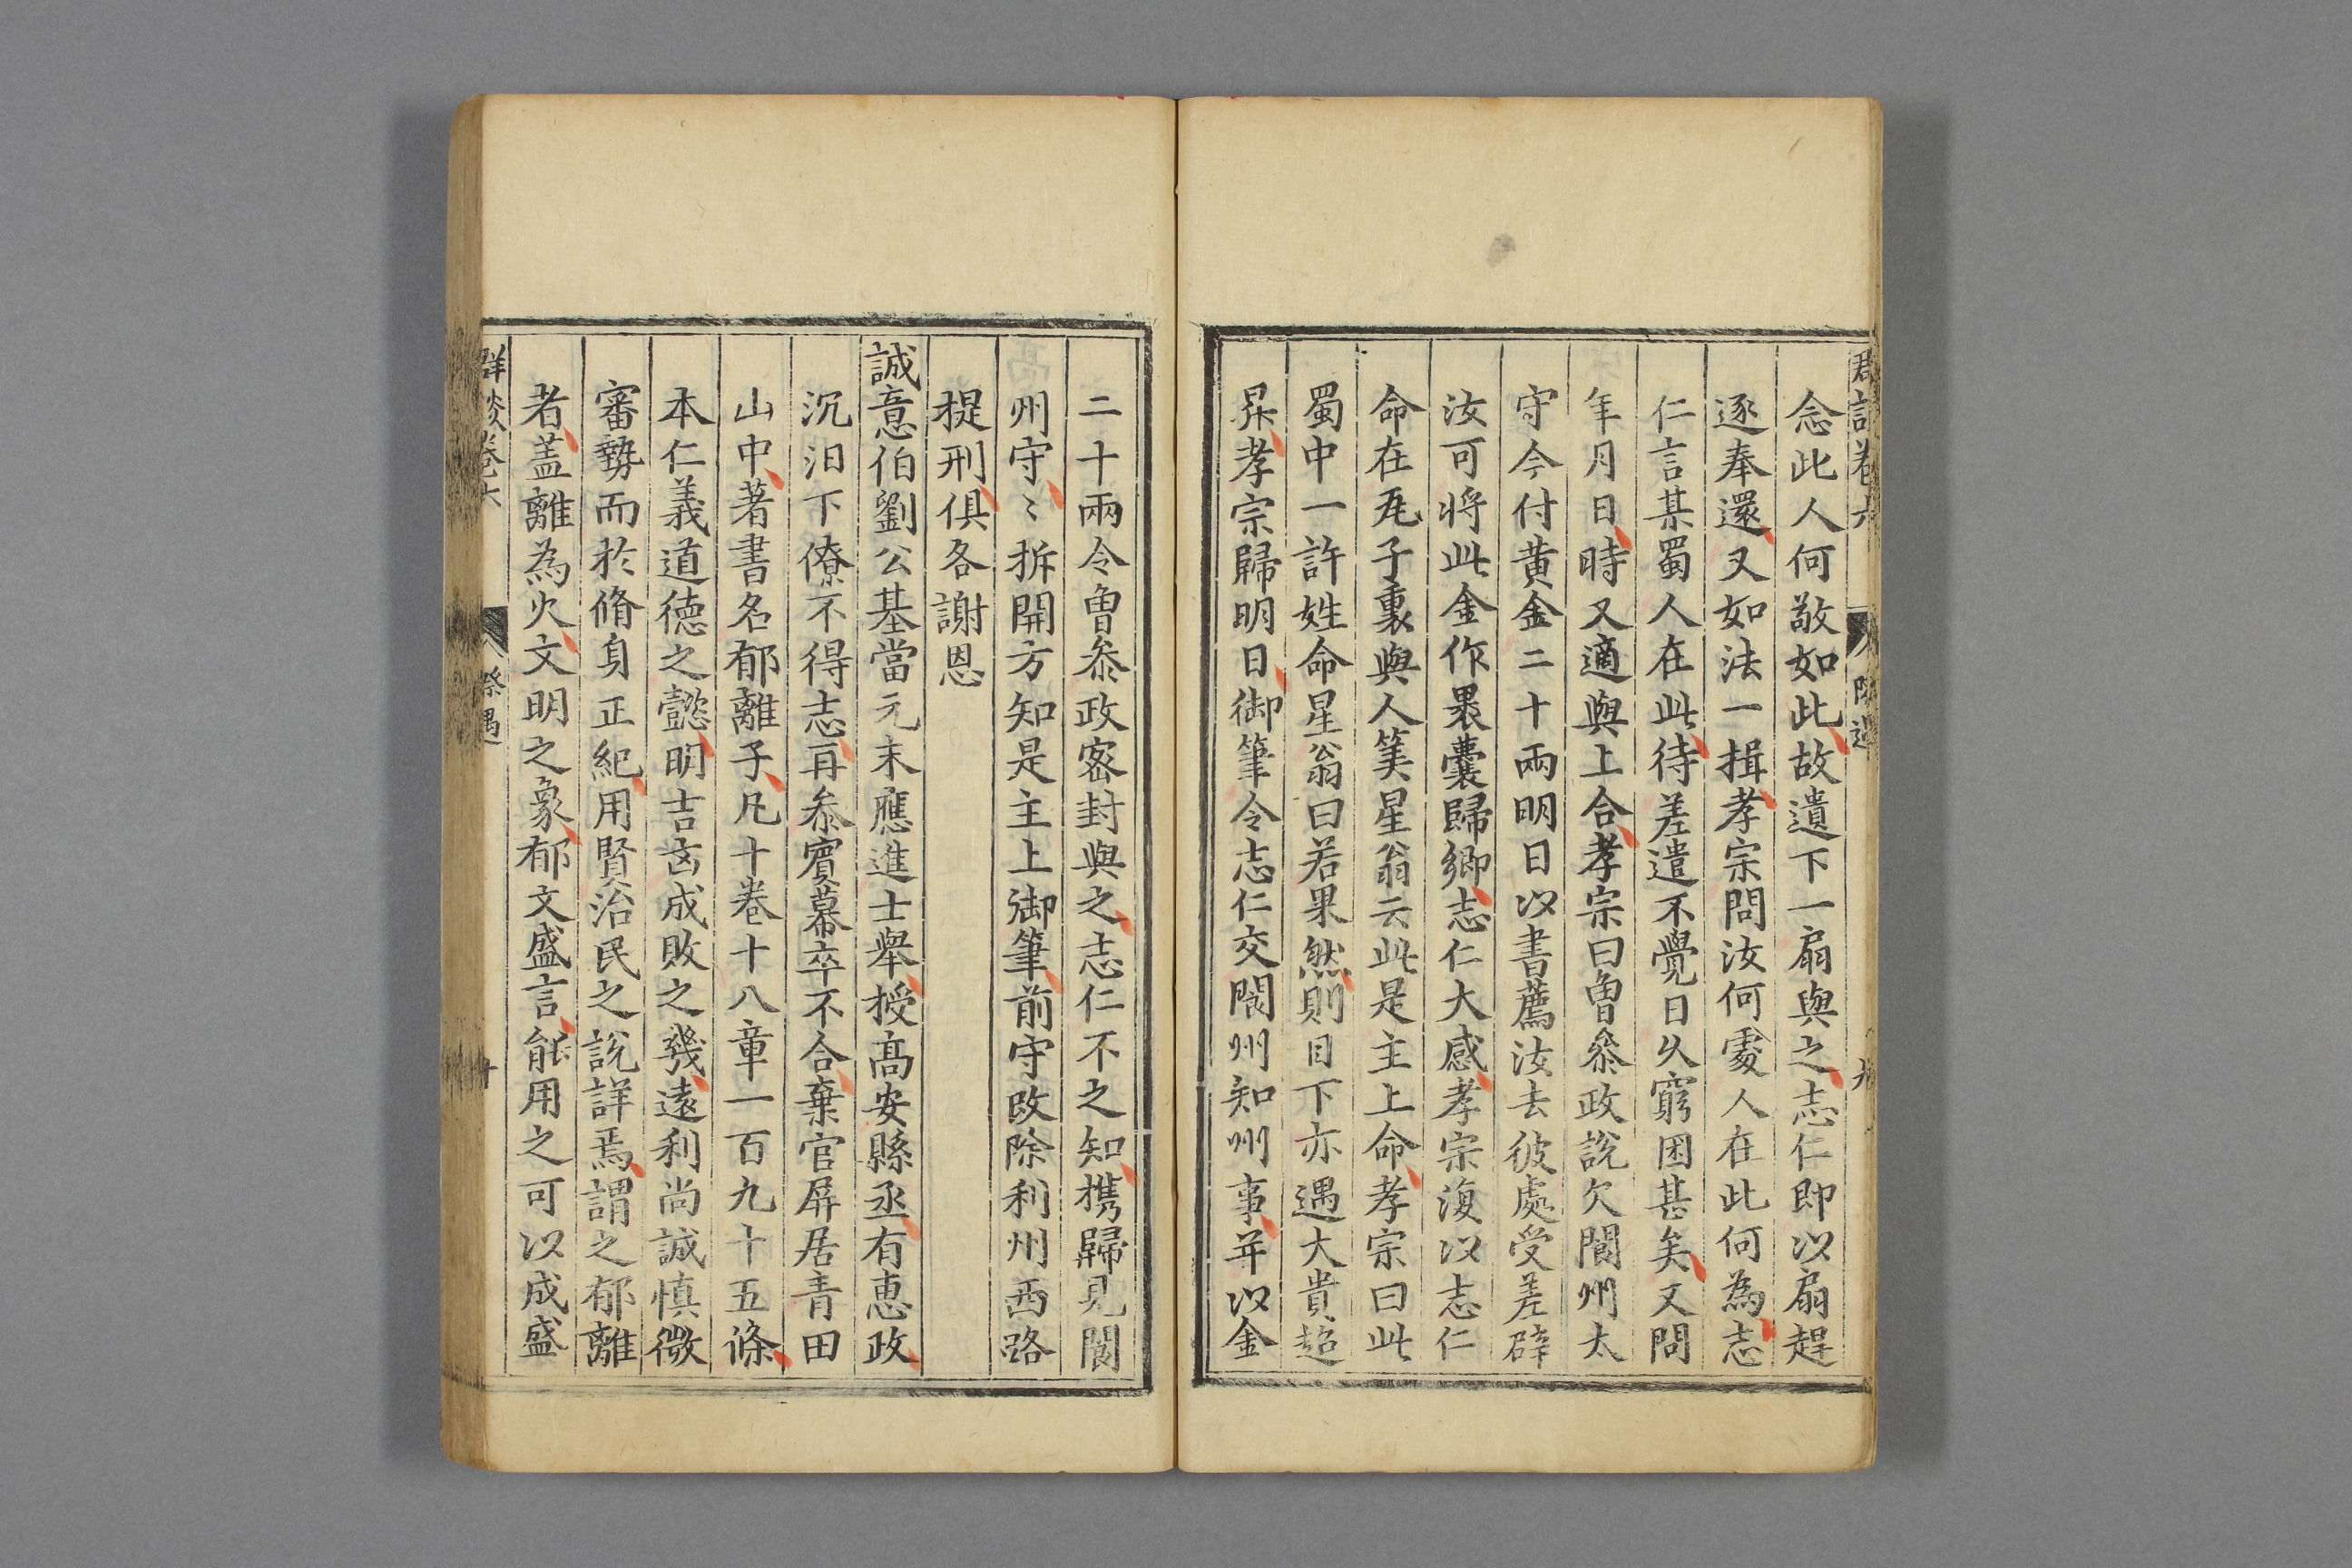 念此人何敬如此故遺下一扇與之志仁即以扇趕
逐奉還又如法一揖孝宗問汝何處人在此何為志
仁言某蜀人在此待差遣不覺日久窮困甚矣又問
年月日時又適與上合孝宗曰魯叅政說欠閬州太
守今付黃金二十兩明日以書薦汝去彼處受差辟
汝可將此金作裹囊歸鄉志仁大感孝宗復以志仁
命在瓦子裏與人筭星翁云此是主上命孝宗曰此
蜀中一許姓命星翁曰若果然則目下亦遇大貴超
昇孝宗歸明日御筆令志仁交閬州知州事并以金
二十兩令魯叅政密封與之志仁不之知携歸見閬
州守〻拆開方知是主上御筆前守改除利州西路
提刑俱各謝恩
誠意伯劉公基當元末應進士舉授高安縣丞有惠政
沉汨下僚不得志再叅賓幕卒不合棄官屏居青田
山中著書名郁離子凡十卷十八章一百九十五條
本仁義道德之懿明吉凶成敗之幾遠利尚誠慎微
審勢而於脩身正紀用賢治民之說詳焉謂之郁離
者盖離為火文明之象郁文盛言能用之可以成盛
群談卷六 際遇 十